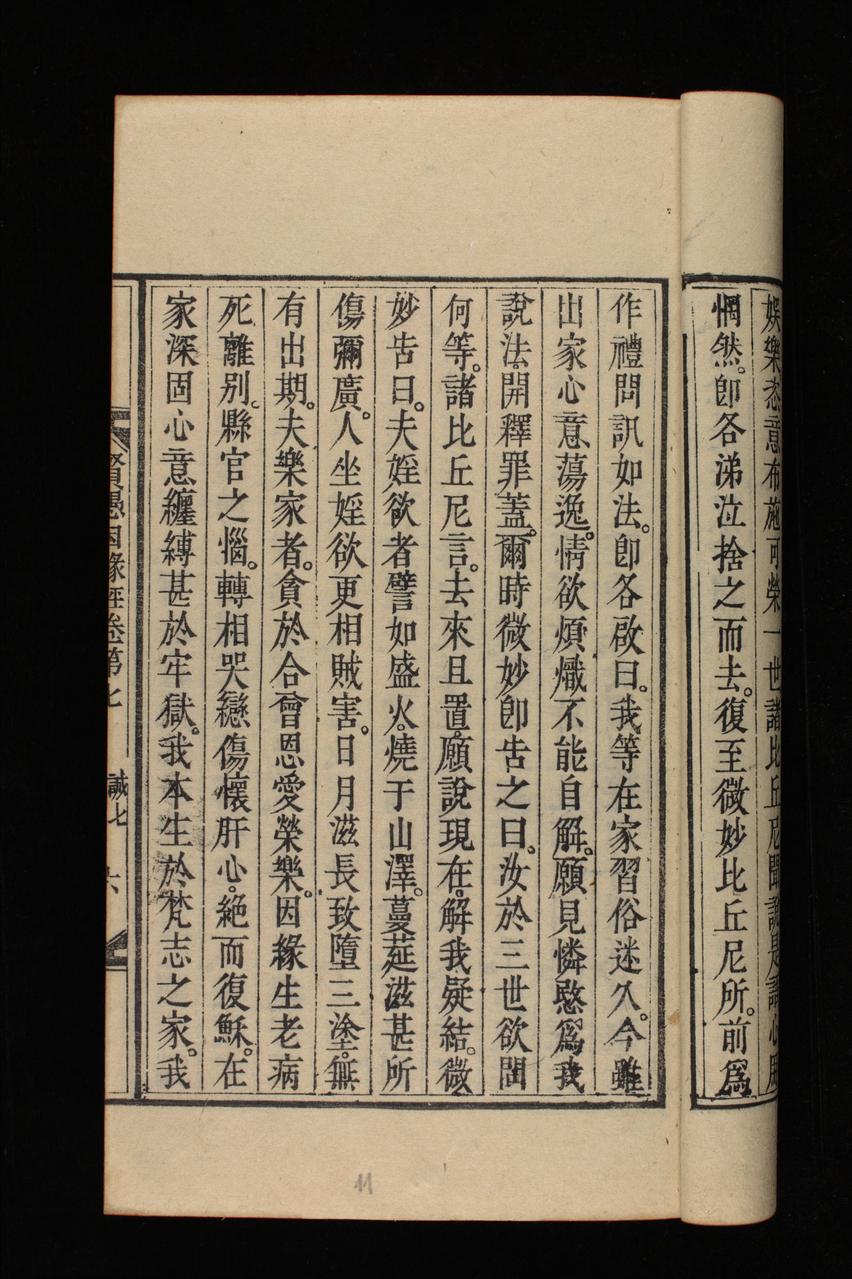 娛樂恣意布施可榮一世諸比丘尼聞說是語心用
惘然。卽各涕泣捨之而去。復至微妙比丘尼所。前爲
作禮問訊如法。卽各啟曰。我等在家習俗迷久。今雖
出家心意蕩逸。情欲煩熾不能自解。願見憐愍爲我
說法。開釋罪蓋。爾時微妙卽告之曰。汝於三世欲問
何等。諸比丘尼言。去來且置。願說現在。解我疑結。微
妙告曰。夫婬欲者譬如盛火。燒于山澤。蔓莚滋甚所
傷彌廣。人坐婬欲更相賊害。日月滋長致墮三塗。無
有出期。夫樂家者。貪於合會恩愛榮樂。因緣生老病
死離別。縣官之惱。轉相哭戀傷懷肝心。絶而復穌。在
家深固心意纏縛甚於牢獄。我本生於梵志之家。我
賢愚因緣經卷第七 誠七 六
11